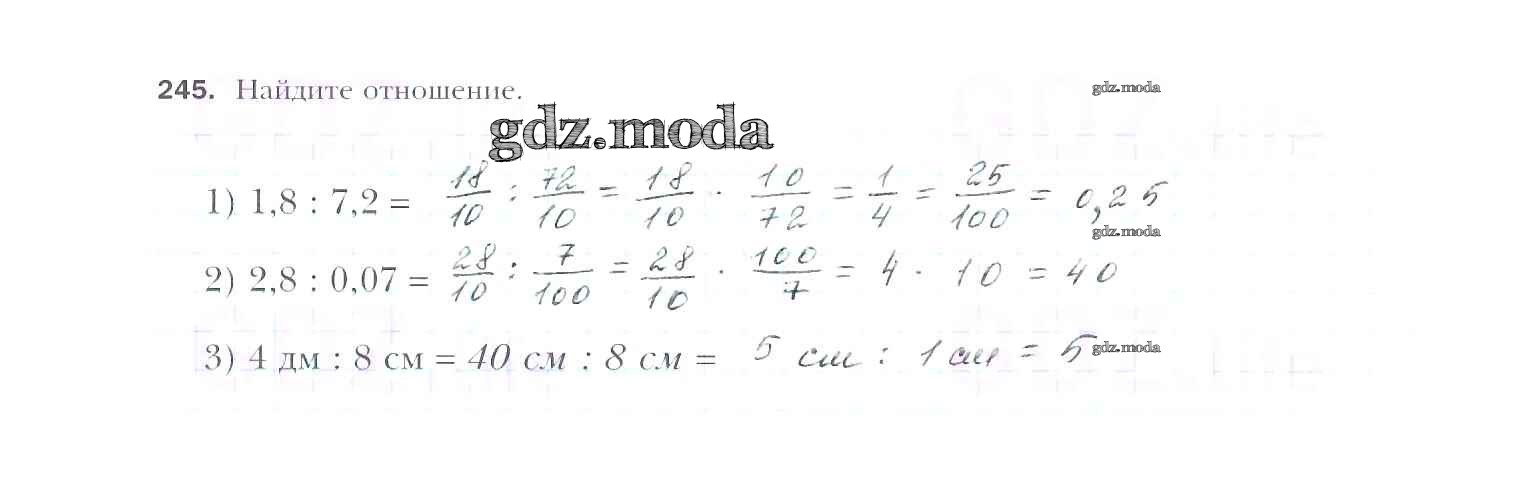 245. Найдите отношение.
gdz.moda
gdz.moda
1) 1,8 : 7,2 = 18/10 : 72/10 = 18/10 · 10/72 = 1/4 = 25/100 = 0,25
gdz.moda
2) 2,8 : 0,07 = 28/10 : 7/100 = 28/10 · 100/7 = 4 · 10 = 40
3) 4 дм : 8 см = 40 см : 8 см = 5 см : 1 см = 5
gdz.moda